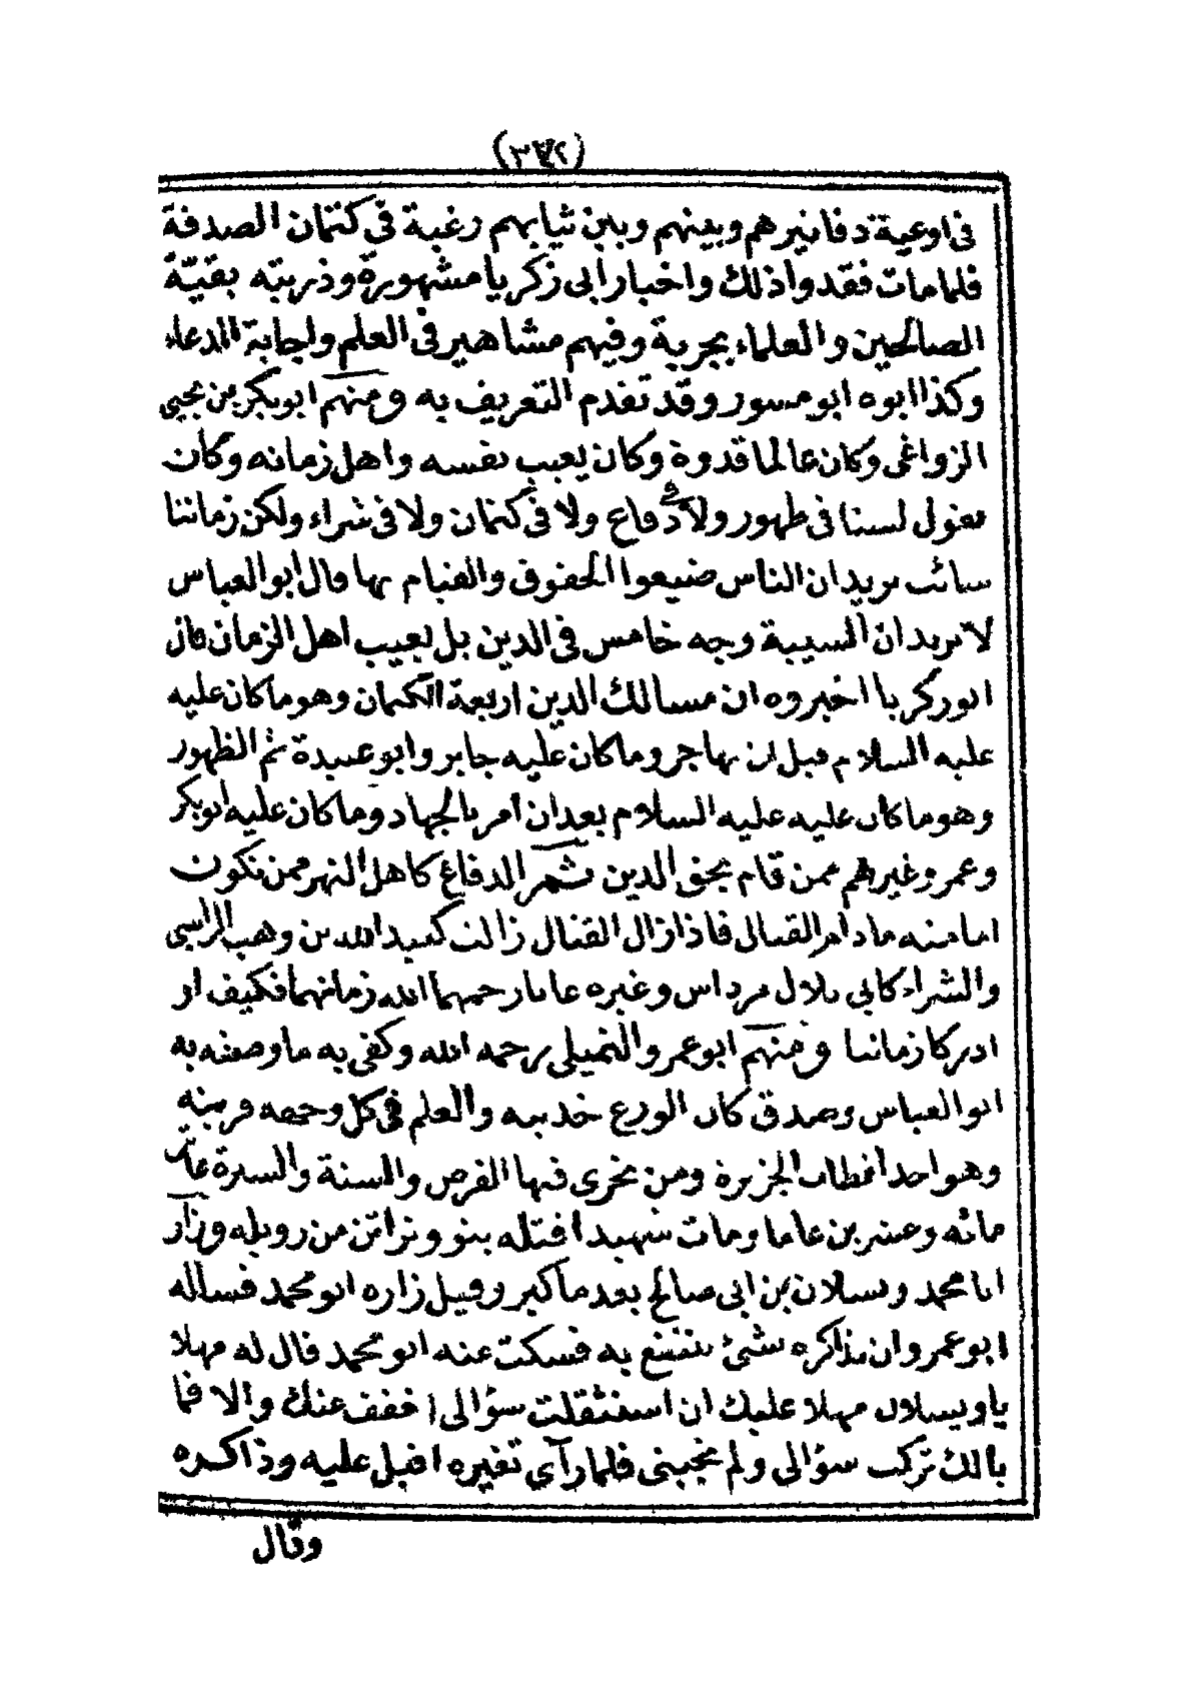 (٣٧٢)
فى اوعية دفانيرهم وبينهم وبين ثيابهم رغبة فى كتمان الصدقة
فلما مات فقدوا ذلك واخبار ابى زكريا مشهورة وذريته بقيّة
الصالحين والعلماء بجربة وفيهم مشاهير فى العلم واجابة الدعاء
وكذا ابوه ابو مسور وقد تقدم التعريف به ومنهم ابو بكر بن يحيى
الزواغى وكان عالما قدوة وكان يعيب نفسه واهل زمانه وكان
يقول لسنا فى ظهور ولا فى دفاع ولا فى كتمان ولا فى شراء ولكن زماننا
سائب يريد ان الناس ضيعوا الحقوق والقيام بها قال ابو العباس
لا تريد ان السيبة وجه خامس فى الدين بل يعيب اهل الزمان قال
ابو زكريا اخبروه ان مسالك الدين اربعة الكتمان وهو ما كان عليه
عليه السلام قبل ان يهاجر وما كان عليه جابر وابو عبيدة ثم الظهور
وهو ما كان عليه عليه السلام بعد ان امر بالجهاد وما كان عليه ابو بكر
وعمر وغيرهم ممن قام بحق الدين ثم الدفاع كاهل النهر ممن تكون
امامته مادام القتال فاذا زال القتال زالت كعبد الله بن وهب الراسبى
والشراء كابى بلال مرداس وغيره عابا رحمهما الله زمانهما فكيف او
ادركا زماننا ومنهم ابو عمرو النميلى رحمه الله وكفى به ما وصفه به
ابو العباس وصدق كان الورع خدينه والعلم فى كل وجهه قرينه
وهو احد اقطاب الجزيرة ومن تحرى فيها الفرض والسنة والسيرة عاش
مائه وعشرين عاما ومات شهيدا قتله بنو وتراتن من رويله وزار
ابا محمد ويسلان بن ابى صالح بعد ما كبر وقيل زاره ابو محمد فساله
ابو عمرو ان يذاكره بشئ ينتفع به فسكت عنه ابو محمد قال له مهلا
يا ويسلان مهلا عليك ان استثقلت سؤالى اخفف عنك والا فما
بالك تركت سؤالى ولم تجبنى فلما رآى تغيره اقبل عليه وذاكره
وقال